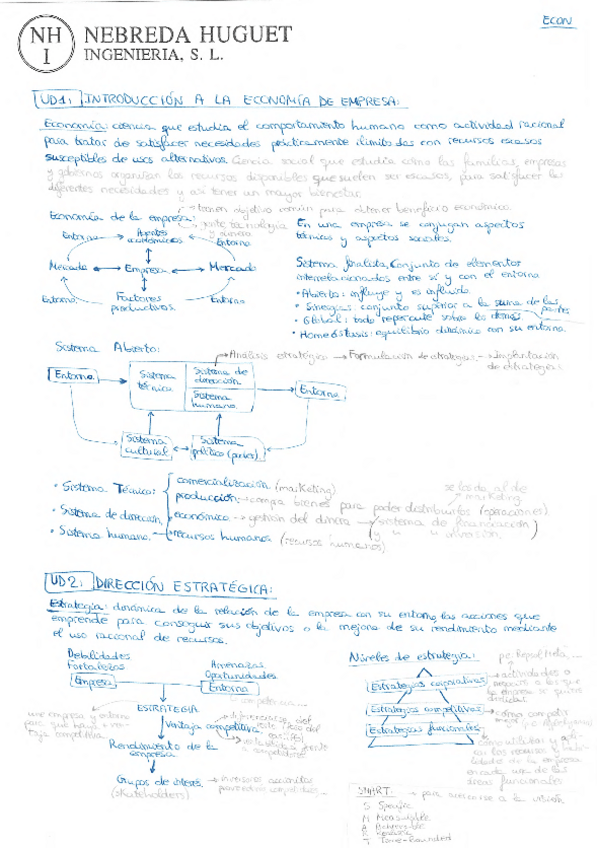 ECON
NH
I
NEBREDA HUGUET
INGENIERIA, S. L.
UD1: INTRODUCCIÓN A LA ECONOMÍA DE EMPRESA:
Economía: ciencia que estudia el comportamiento humano como actividad racional
para tratar de satisfacer necesidades prácticamente ilimitadas con recursos escasos
susceptibles de usos alternativos. Ciencia social que estudia cómo las familias, empresas
y gobiernos organizan los recursos disponibles que suelen ser escasos, para satisfacer las
diferentes necesidades y así tener un mayor bienestar.
tienen objetivo común para obtener beneficio económico
Economía de la empresa: gente, tecnología
y dinero
En una empresa se conjugan aspectos
técnicos y aspectos sociales.
Entorno Agentes económicos Entorno
Mercado Empresa Mercado
Entorno Factores productivos Entorno
Sistema finalista, conjunto de elementos
interrelacionados entre sí y con el entorno
• Abierto: influye y es influido
• Sinergias: conjunto superior a la suma de las partes
• Global: todo repercute sobre los demás
• Homeóstasis: equilibrio dinámico con su entorno.
Sistema Abierto:
Análisis estratégico → Formulación de estrategias → Implantación
de estrategias
Entorno
Sistema técnico
Sistema de dirección
Sistema humano
Entorno
Sistema cultural
Sistema político (poder)
• Sistema Técnico: comercialización (marketing)
producción → compra bienes para poder distribuirlos (operaciones)
se los da al de marketing
• Sistema de dirección económico → gestión del dinero → (sistema de financiación
y " " inversión)
• Sistema humano → recursos humanos (recursos humanos)
UD2: DIRECCIÓN ESTRATÉGICA:
Estrategia: dinámica de la relación de la empresa con su entorno, las acciones que
emprende para conseguir sus objetivos o la mejora de su rendimiento mediante
el uso racional de recursos.
Debilidades
Fortalezas
Empresa
Amenazas
Oportunidades
Entorno
ESTRATEGIA
une empresa y entorno
Ventaja competitiva
Rendimiento de la
empresa
Grupos de interés
(stakeholders)
Niveles de estrategia:
Estrategias corporativas
Estrategias competitivas
Estrategias funcionales
SMART → para acercarse a la visión
S Specific
M Measurable
A Achievable
T Time-bounded